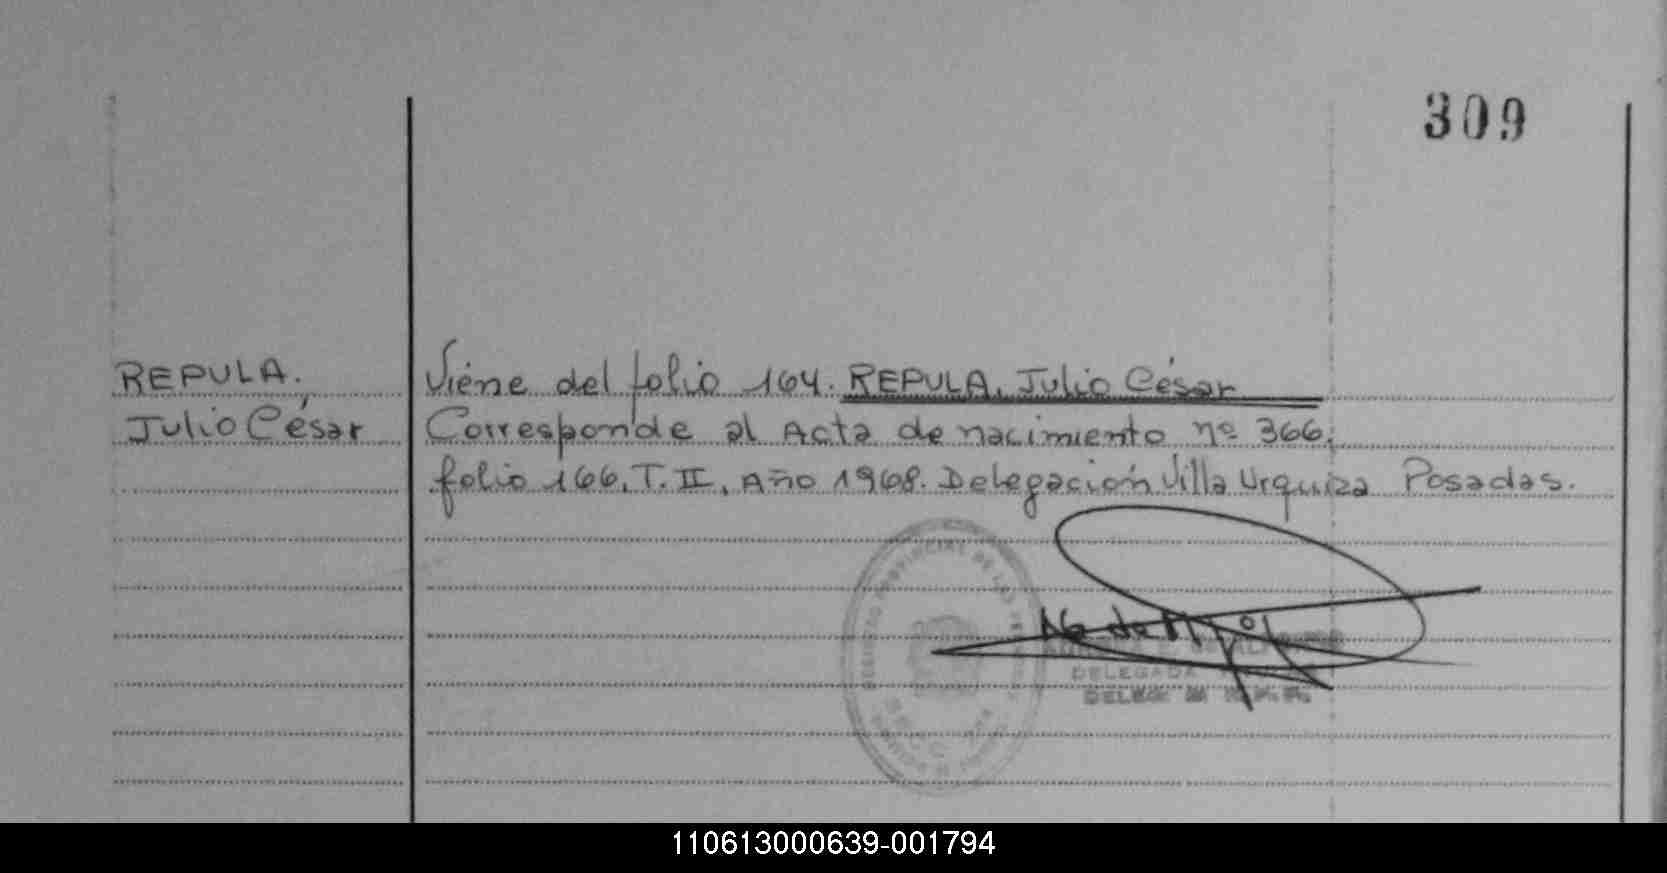 309
REPULA.
Julio César
Viene del folio 164. REPULA, Julio César
Corresponde al Acta de nacimiento nº 366,
folio 166, T. II, Año 1968. Delegación Villa Urquiza Posadas.
REGISTRO PROVINCIAL DE LAS PERSONAS
DELEGADA
110613000639-001794